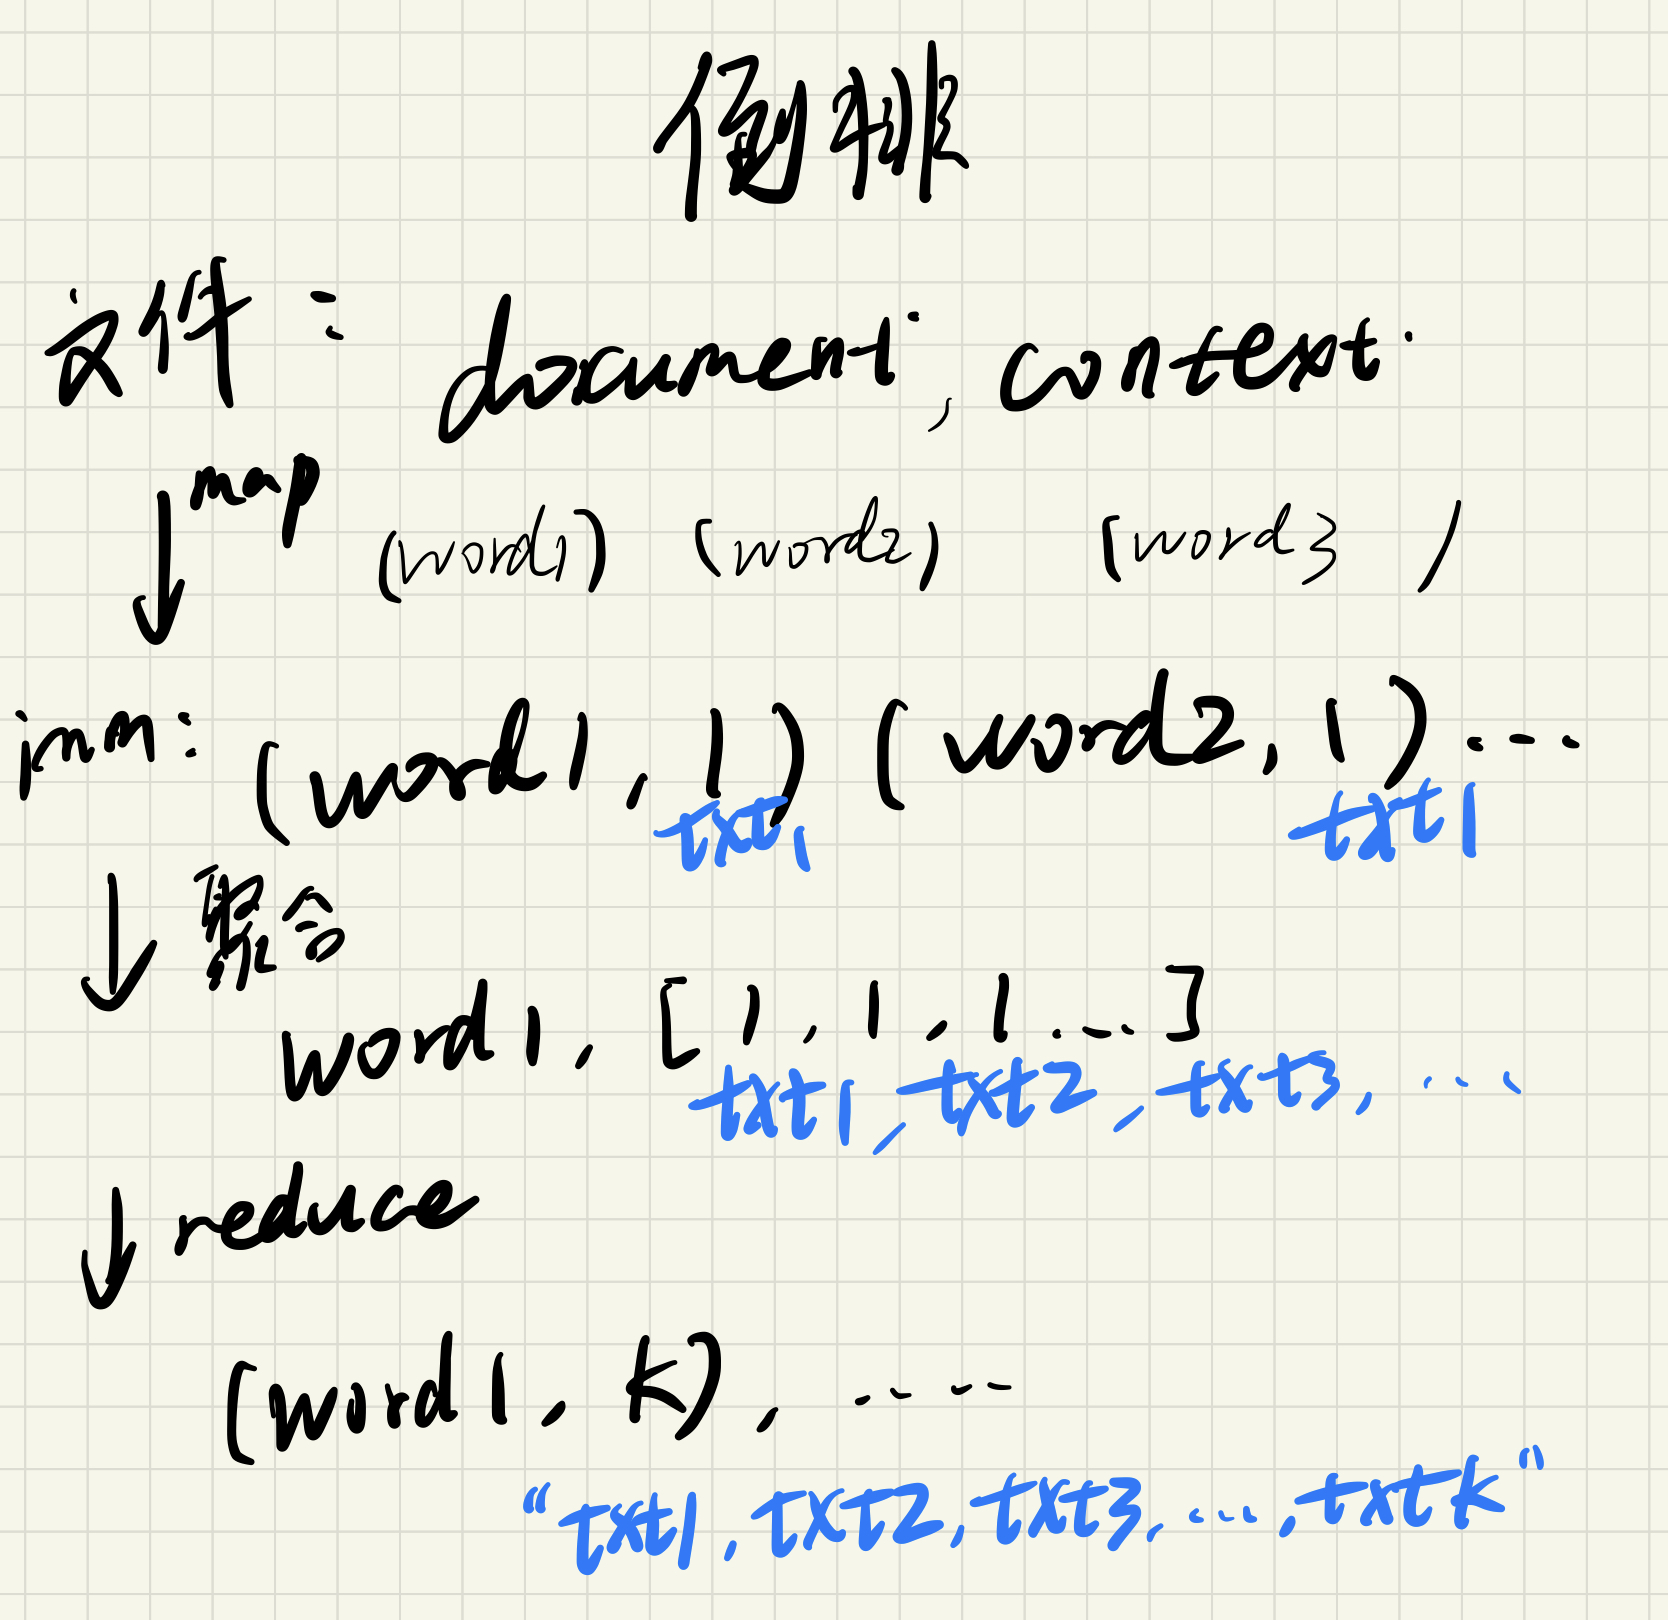 倒排
文件: document, context.
map
(word1) (word2) (word3)
imm: (word1, 1) (word2, 1)...
txt1 txt1
聚合
word1, [1, 1, 1 ...]
txt1, txt2, txt3, ...
reduce
(word1, k), ....
"txt1, txt2, txt3, ..., txtk"